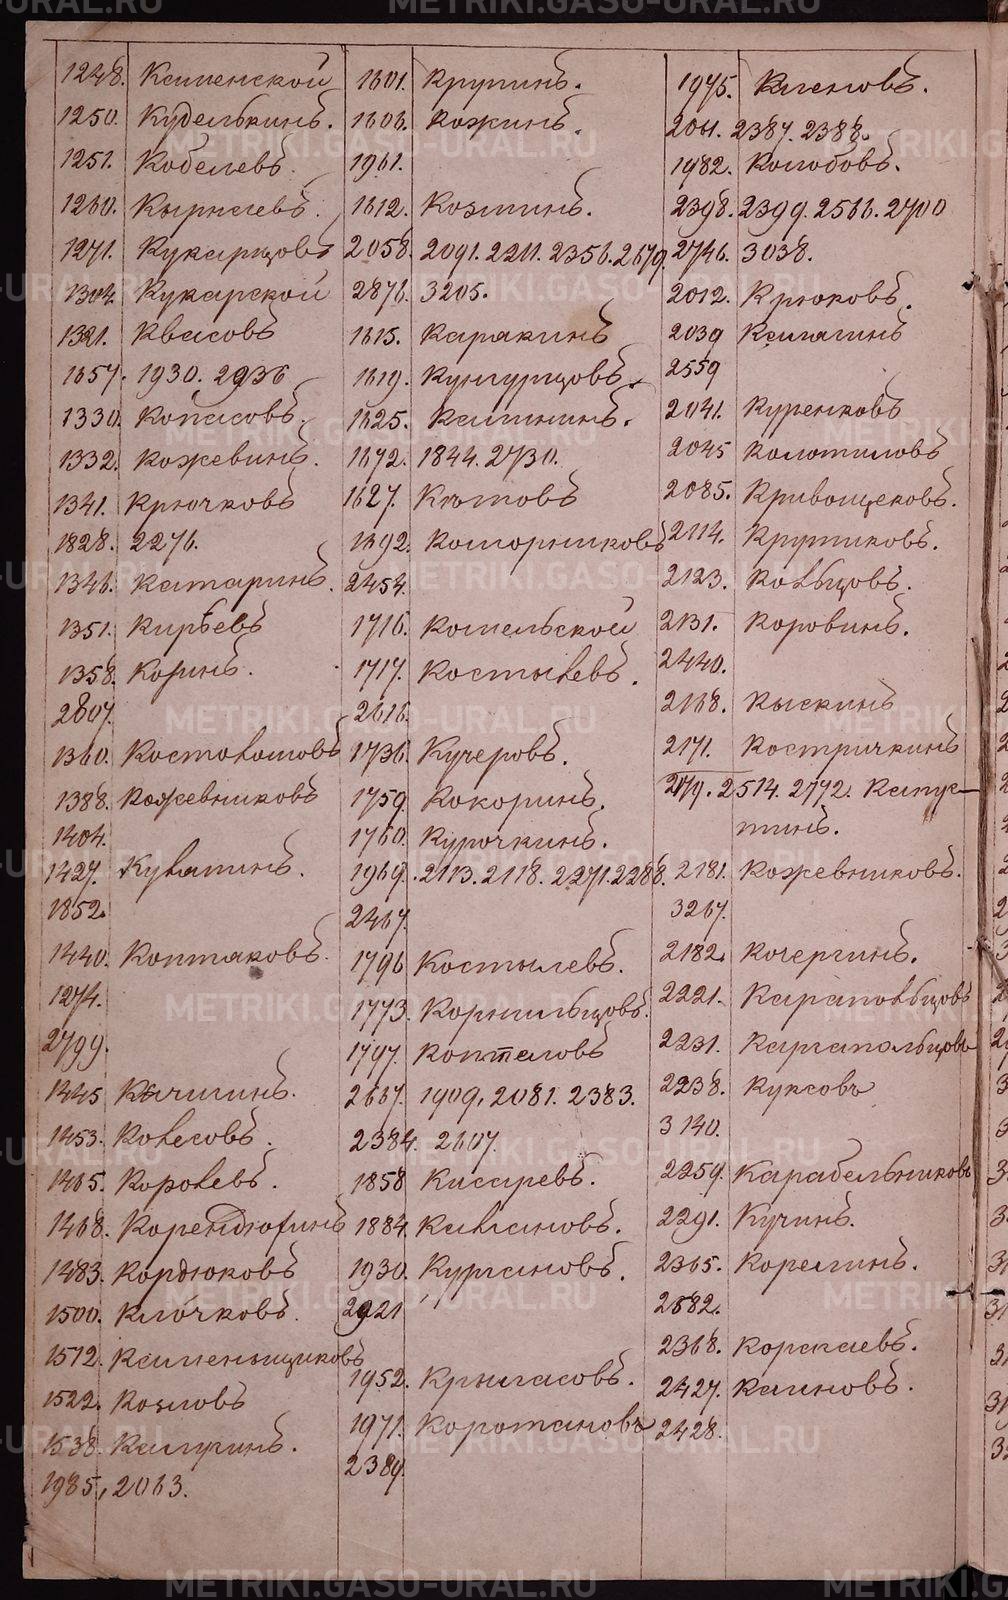 1248. Каменской
1250. Кудelькинъ.
1251. Кобелевъ.
1260. Кырнаевъ.
1271. Кукарцовъ
1304. Кукарской
1321. Квасовъ
1657. 1930. 2936
1330. Копасовъ.
1332. Кожевинъ.
1341. Крючковъ
1828. 2276.
1346. Катаринъ.
1351. Кирьевъ
1358. Коринъ.
2807.
1360. Костоломовъ
1388. Кожевниковъ
1404.
1427. Кулатинъ.
1852.
1440. Коптяковъ.
1274.
2799.
1445 Кычигинъ.
1453. Колесовъ.
1465. Королевъ.
1468. Корендюгинъ
1483. Кордюковъ
1500. Клочковъ.
1512. Каменьщиковъ
1522. Козловъ
1538. Калугинъ.
1985, 2063.
1601. Крупинъ.
1606. Кожинъ.
1961.
1612. Козминъ.
2058. 2091. 2211. 2356. 2679.
2876. 3205.
1615. Каракинъ
1619. Кунгурцовъ.
1625. Калининъ.
1672. 1844. 2730.
1627. Кѣтовъ
1692. Коморниковъ
2454.
1716. Котельской
1717. Костылевъ.
2616.
1736. Кучеровъ.
1759. Кокоринъ.
1760. Курочкинъ.
1969. 2113. 2118. 2271. 2288.
2467.
1796 Костылевъ.
1773. Корнильцовъ.
1797. Коптеловъ
2667. 1909, 2081. 2383.
2384. 2607.
1858 Кисаревъ.
1884. Кивлановъ.
1930. Кургановъ.
2921
1952. Крыласовъ.
1971. Коротановъ
2389.
1975. Каеновъ.
2041. 2387. 2388.
1982. Колобовъ.
2398. 2399. 2566. 2700
2746. 3038.
2012. Крюковъ.
2039 Калагинъ
2559
2041. Куренковъ
2045 Колотиловъ
2085. Кривощековъ.
2114. Крутиковъ.
2123. Кольцовъ.
2131. Коровинъ.
2440.
2168. Кыскинъ
2171. Костричкинъ
2179. 2514. 2772. Капус-
тинъ.
2181. Кожевниковъ.
3267.
2182. Кочергинъ.
2221. Карапольцовъ
2231. Каргапольцовъ
2238. Куксовъ
3140.
2259. Карабельниковъ
2291. Кучинъ.
2365. Корелинъ.
2682.
2368. Коркаевъ.
2427. Каиновъ.
2428.
METRIKI.GASO-URAL.RU